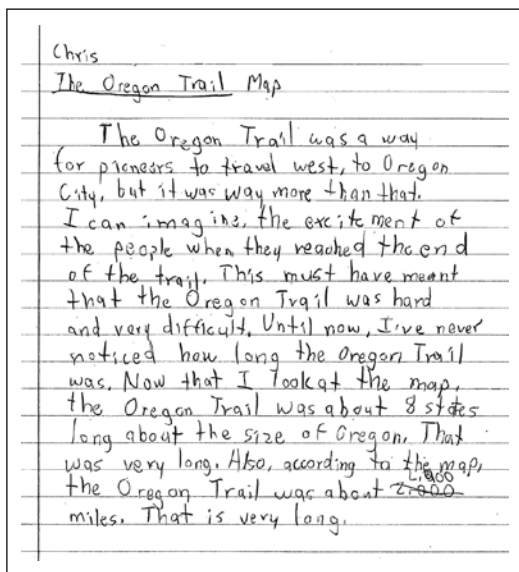 Chris
The Oregon Trail Map
The Oregon Trail was a way
for pioneers to travel west, to Oregon
City, but it was way more than that.
I can imagine, the excitement of
the people when they reached the end
of the trail. This must have meant
that the Oregon Trail was hard
and very difficult. Until now, I've never
noticed how long the Oregon Trail
was. Now that I look at the map,
the Oregon Trail was about 8 states
long about the size of Oregon. That
was very long. Also, according to the map,
the Oregon Trail was about 2,000
miles. That is very long.